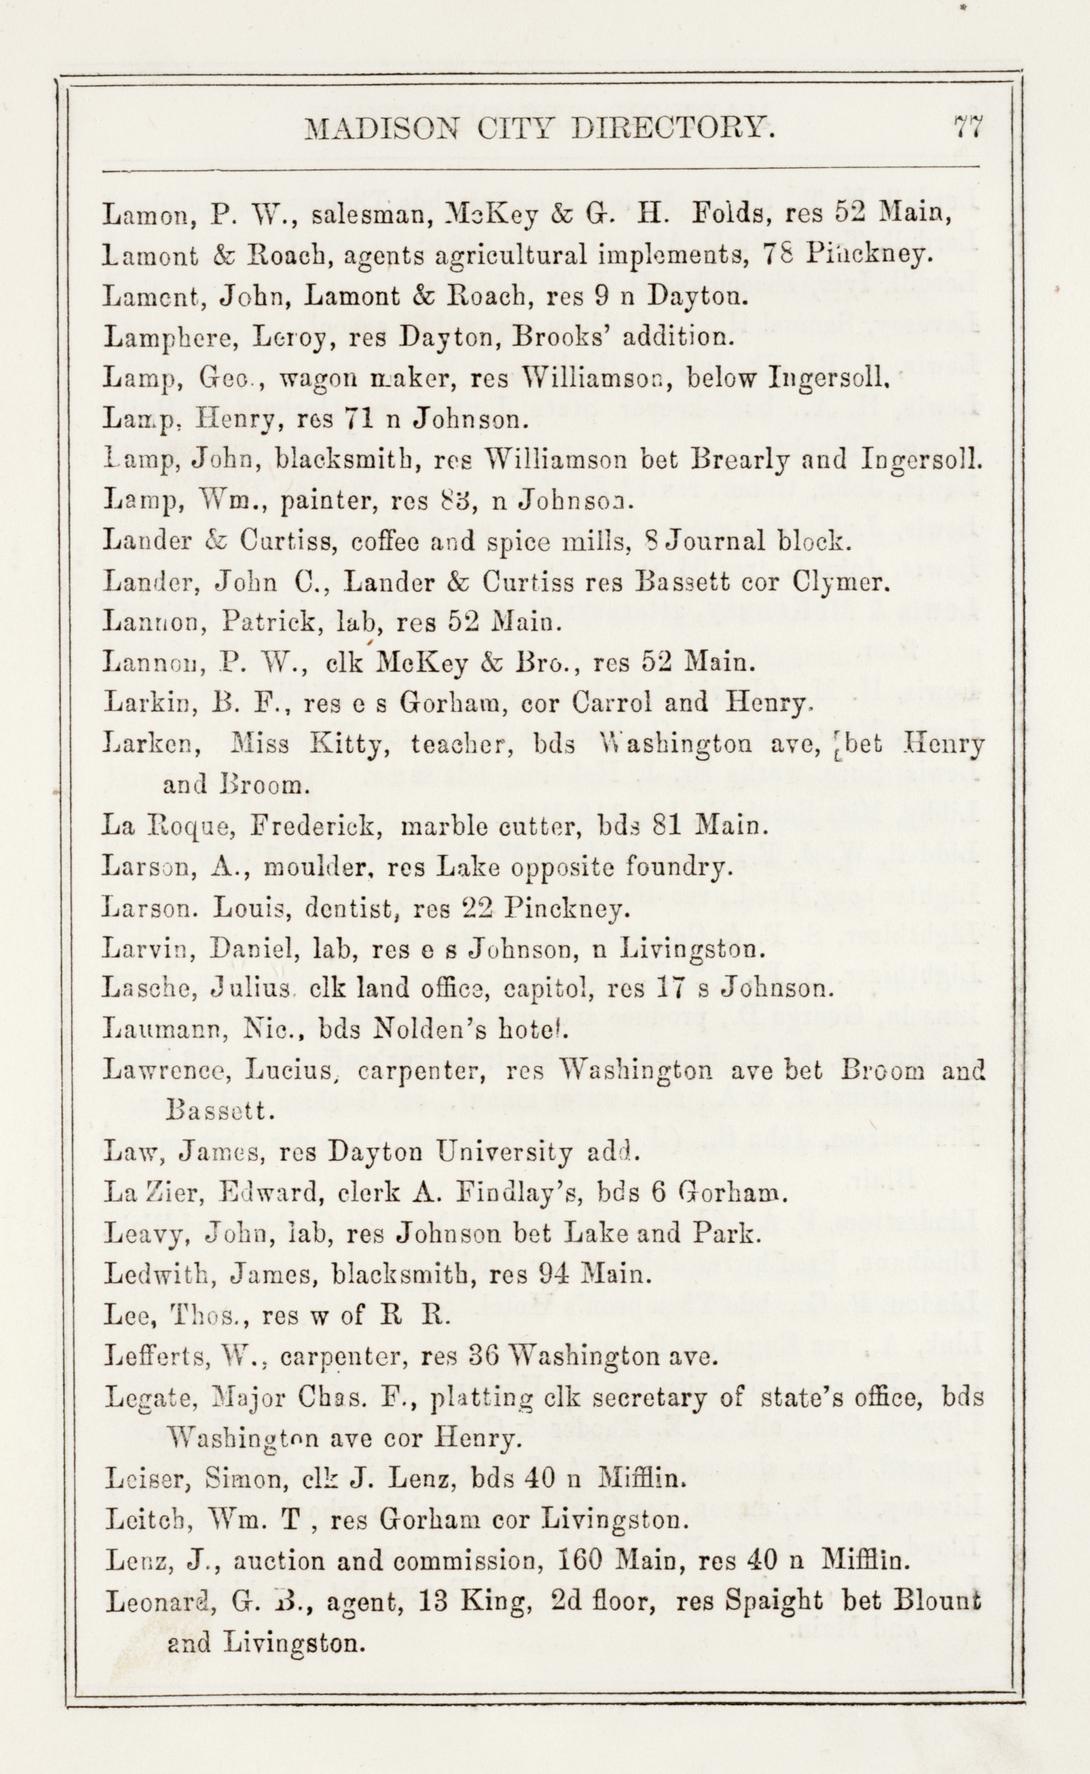 MADISON CITY DIRECTORY. 77
Lamon, P. W., salesman, McKey & G. H. Folds, res 52 Main,
Lamont & Roach, agents agricultural implements, 78 Pinckney.
Lamont, John, Lamont & Roach, res 9 n Dayton.
Lamphere, Leroy, res Dayton, Brooks' addition.
Lamp, Geo., wagon maker, res Williamson, below Ingersoll.
Lamp, Henry, res 71 n Johnson.
Lamp, John, blacksmith, res Williamson bet Brearly and Ingersoll.
Lamp, Wm., painter, res 83, n Johnson.
Lander & Curtiss, coffee and spice mills, 8 Journal block.
Lander, John C., Lander & Curtiss res Bassett cor Clymer.
Lannon, Patrick, lab, res 52 Main.
Lannon, P. W., clk McKey & Bro., res 52 Main.
Larkin, B. F., res e s Gorham, cor Carrol and Henry.
Larken, Miss Kitty, teacher, bds Washington ave, [bet Henry
and Broom.
La Roque, Frederick, marble cutter, bds 81 Main.
Larson, A., moulder, res Lake opposite foundry.
Larson. Louis, dentist, res 22 Pinckney.
Larvin, Daniel, lab, res e s Johnson, n Livingston.
Lasche, Julius. clk land office, capitol, res 17 s Johnson.
Laumann, Nic., bds Nolden's hotel.
Lawrence, Lucius, carpenter, res Washington ave bet Broom and
Bassett.
Law, James, res Dayton University add.
La Zier, Edward, clerk A. Findlay's, bds 6 Gorham.
Leavy, John, lab, res Johnson bet Lake and Park.
Ledwith, James, blacksmith, res 94 Main.
Lee, Thos., res w of R R.
Lefferts, W., carpenter, res 36 Washington ave.
Legate, Major Chas. F., platting clk secretary of state's office, bds
Washington ave cor Henry.
Leiser, Simon, clk J. Lenz, bds 40 n Mifflin.
Leitch, Wm. T , res Gorham cor Livingston.
Lenz, J., auction and commission, 160 Main, res 40 n Mifflin.
Leonard, G. B., agent, 13 King, 2d floor, res Spaight bet Blount
and Livingston.